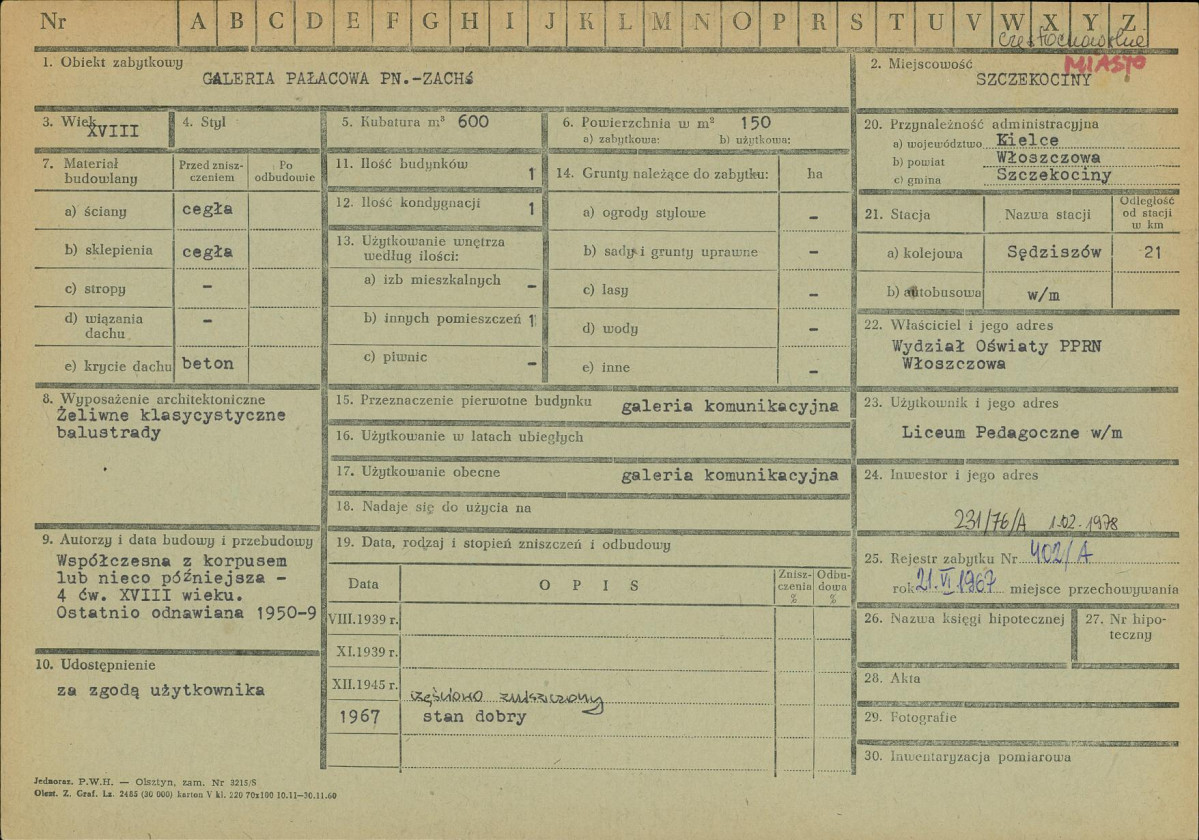 Nr A B C D E F G H I J K L M N O P R S T U V W X Y Z
częstochowskie
1. Obiekt zabytkowy
GALERIA PAŁACOWA PN.-ZACH.
2. Miejscowość
MIASTO
SZCZEKOCINY
3. Wiek
XVIII
4. Styl
5. Kubatura m³ 600
6. Powierzchnia w m² 150
a) zabytkowa: b) użytkowa:
7. Materiał budowlany
Przed znisz-
czeniem
Po
odbudowie
a) ściany cegła
b) sklepienia cegła
c) stropy –
d) wiązania
dachu –
e) krycie dachu beton
8. Wyposażenie architektoniczne
Żeliwne klasycystyczne
balustrady
9. Autorzy i data budowy i przebudowy
Współczesna z korpusem
lub nieco późniejsza -
4 ćw. XVIII wieku.
Ostatnio odnawiana 1950-9
10. Udostępnienie
za zgodą użytkownika
11. Ilość budynków 1
12. Ilość kondygnacji 1
13. Użytkowanie wnętrza
według ilości:
a) izb mieszkalnych –
b) innych pomieszczeń 1
c) piwnic –
14. Grunty należące do zabytku: ha
a) ogrody stylowe –
b) sady i grunty uprawne –
c) lasy –
d) wody –
e) inne –
15. Przeznaczenie pierwotne budynku galeria komunikacyjna
16. Użytkowanie w latach ubiegłych
17. Użytkowanie obecne galeria komunikacyjna
18. Nadaje się do użycia na
19. Data, rodzaj i stopień zniszczeń i odbudowy
Data O P I S
Znisz-
czenia
%
Odbu-
dowa
%
VIII.1939 r.
XI.1939 r.
XII.1945 r. częściowo zniszczony
1967 stan dobry
20. Przynależność administracyjna
a) województwo Kielce
b) powiat Włoszczowa
c) gmina Szczekociny
21. Stacja Nazwa stacji
Odległość
od stacji
w km
a) kolejowa Sędziszów 21
b) autobusowa w/m
22. Właściciel i jego adres
Wydział Oświaty PPRN
Włoszczowa
23. Użytkownik i jego adres
Liceum Pedagoczne w/m
24. Inwestor i jego adres
231/76/A 1.02.1978
25. Rejestr zabytku Nr 402/A
rok 21.VI.1967 miejsce przechowywania
26. Nazwa księgi hipotecznej
27. Nr hipo-
teczny
28. Akta
29. Fotografie
30. Inwentaryzacja pomiarowa
Jednoraz. P.W.H. — Olsztyn, zam. Nr 3215/S
Olszt. Z. Graf. Lz. 2485 (30 000) karton V kl. 220 70x100 10.11—30.11.60